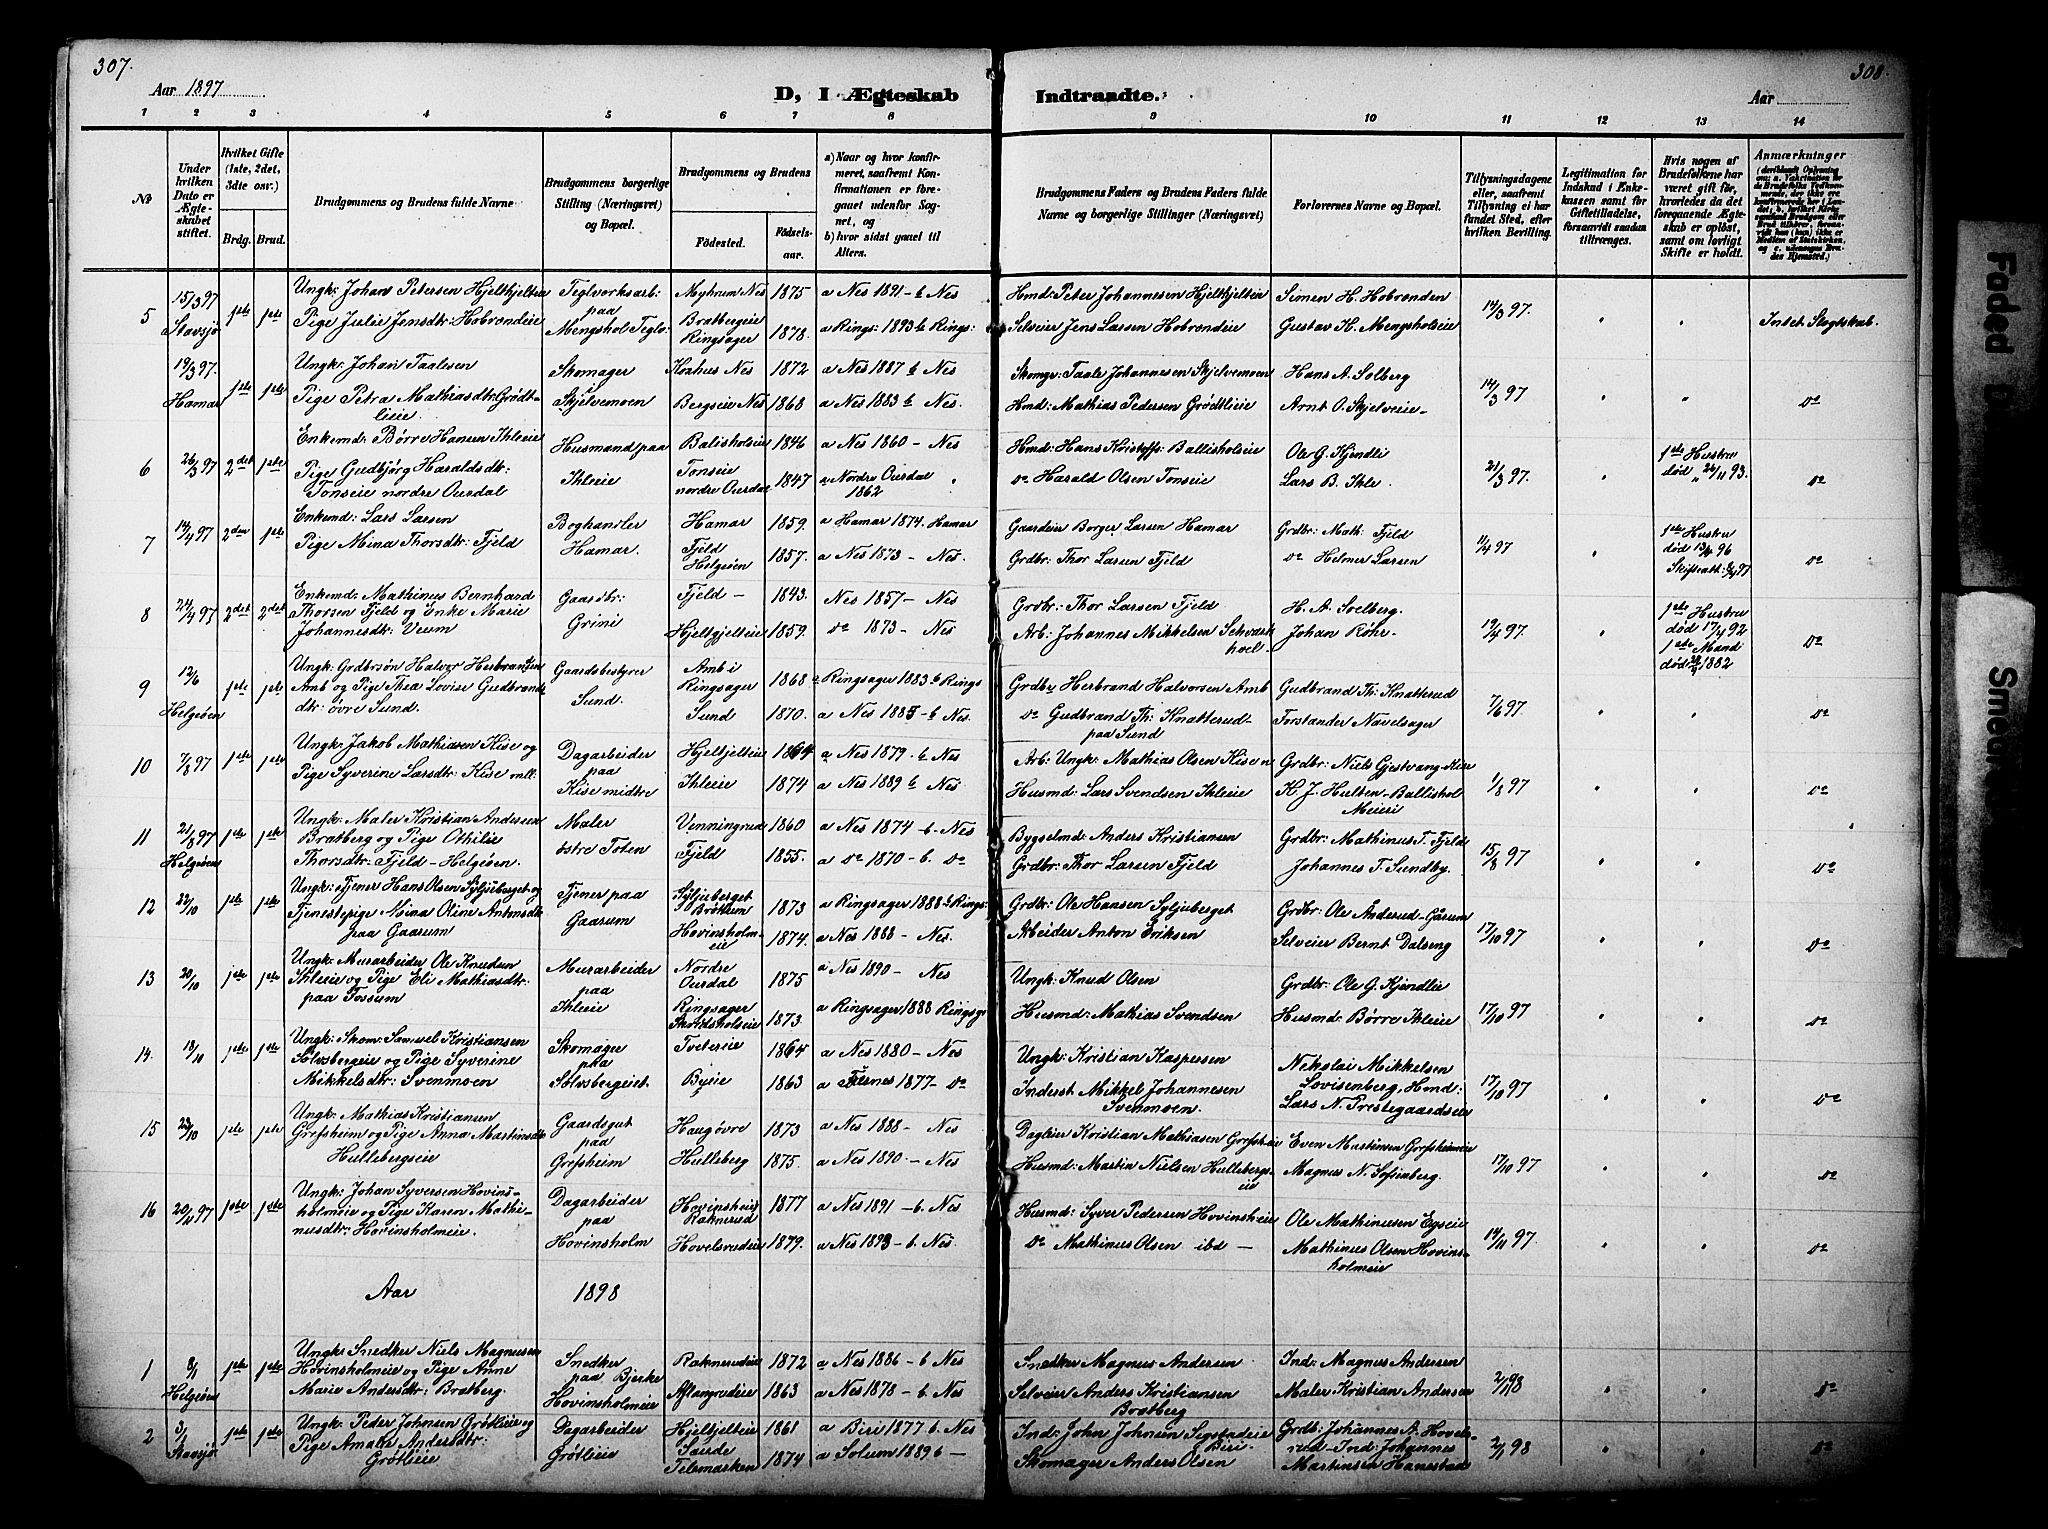 307.
308.
Aar 1897
D, I Ægteskab Indtraadte.
Aar
1 2 3 4 5 6 7 8 9 10 11 12 13 14
No
Under hvilken Dato er Ægteskabet stiftet.
Hvilket Gifte (1ste, 2det, 3die osv.)
Brdg. Brud.
Brudgommens og Brudens fulde Navne
Brudgommens borgerlige Stilling (Næringsvei) og Bopæl.
Brudgommens og Brudens
Födested.
Födselsaar.
a) Naar og hvor konfirmeret, saafremt Konfirmationen er foregaaet udenfor Sognet, og
b) hvor sidst gaaet til Alters.
Brudgommens Faders og Brudens Faders fulde Navne og borgerlige Stillinger (Næringsvei)
Forlovernes Navne og Bopæl.
Tillysningsdagene eller, saafremt Tillysning ei har fundet Sted, efter hvilken Bevilling.
Legitimation for Indskud i Enkekassen samt for Giftetilladelse, forsaavidt saadan tiltrænges.
Hvis nogen af Brudefolkene har været gift för, hvorledes da det foregaaende Ægteskab er oplöst, samt om lovligt Skifte er holdt.
Anmærkninger
5 15/3 97 Stavsjø 1ste 1ste
Ungk: Johan Petersen Hjeltkjelteie
Pige Julie Jensdtr: Hobrendeie
Teglverksarb: paa Mengshol Teglv:
Myhrum Nes 1875 a Nes 1891 - b Nes
Bratbergeie Ringsager 1878. a Rings: 1893 b Rings:
Hmd: Peter Johannesen Hjeltkjeltein
Selveier Jens Larsen Hobrendeie
Simen H. Hobrenden
Gustav H. Mengsholeie
14/3 97.
Indet Slegtskab.
19/3 97. Hamar 1ste 1ste
Ungk: Johan Taalesen
Pige Petra Mathiasdtr: Grødtleie.
Skomager i Skjelvemoen
Korhus Nes 1872 a Nes 1887 b Nes
Bergseie Nes 1868 a Nes 1883 b Nes.
Skomgr: Taale Johannesen Skjelvemoen
Hmd: Mathias Pedersen Grødtleie
Hans A. Solberg
Arnt O. Skjelveie
14/3 97
do
6 26/3 97 2det 1ste
Enkemd: Børre Hansen Ihleie
Pige Gudbjørg Haraldsdtr: Tonseie nordre Ourdal
Husmand paa Ihleie
Balisholeie 1846 a Nes 1860 - Nes
Tonseie nordre Ourdal 1847 a Nordre Ourdal 1862
Hmd: Hans Kristoffs: Ballisholeie
do Harald Olsen Tonseie
Ole G. Kjendli
Lars B. Ihle.
21/3 97.
1ste Hustru død 26/11 93.
do
7 14/4 97 2den 1ste
Enkemd: Lars Larsen
Pige Mina Thorsdtr: Fjeld
Boghandler Hamar.
Hamar 1859. a Hamar 1874. Hamar
Fjeld Helgeøen 1857. a Nes 1873 - Nes.
Gaardeier Borger Larsen Hamar
Grdbr: Thor Larsen Fjeld
Grdbr: Math: Fjeld
do Helmer Larsen
11/4 97
1ste Hustru død 13/4 96
do
8 24/4 97 2det 2det
Enkemd: Mathinus Bernhard Thorsen Fjeld og Enke Marie Johannesdtr: Veum
Gaardbr: Grini
Fjeld - 1843. Nes 1857 - Nes
Hjeltkjelteie 1859. do 1873 - Nes
Grdbr: Thor Larsen Fjeld
Arb: Johannes Mikkelsen
H. A. Soelberg.
Johan Röhr
19/4 97.
1ste Hustru død 17/4 92
1ste Mand død 1882
do
9 12/6 Helgeøen 1ste 1ste
Ungk: Grdbrsøn Halvor Herbrandsen Amb og Pige Thea Lovise Gudbrandsdtr: övre Sund.
Gaardsbestyrer Sund.
Amb i Ringsager 1868 a Ringsager 1883 b Rings
Sund 1870. a Nes 1885 - b Nes.
Grdbr Herbrand Halvorsen Amb
do Gudbrand Th: Knatterud paa Sund
Gudbrand Th: Knatterud
Forstander Navelsager
7/6 97.
do
10 7/8 97 1ste 1ste
Ungk: Jakob Mathiasen Kise og
Pige Syverine Larsdtr: Kise mll:
Dagarbeider paa Kise midtre
Hjeltkjelteie 1864 a Nes 1879. b Nes
Ihleie 1874 a Nes 1889 b Nes
Arb: Ungk: Mathias Olsen Kise
Husmd: Lars Svendsen Ihleie
Grdbr: Niels Gjestvang-Kise
K. J. Hulten-Ballishol Meieri
1/8 97
do
11 21/8 97 Helgeøen 1ste 1ste
Ungk: Maler Kristian Andersen Bratberg og Pige Othilie Thorsdtr: Fjeld - Helgeøen.
Maler östre Toten
Venningrud 1860 a Nes 1874 - b. Nes
Fjeld 1855. a do 1870 - b. do
Bygselmd: Anders Kristiansen
Grdbr: Thor Larsen Fjeld
Grdbr: Mathinus T. Fjeld
Johannes T. Sundby.
15/8 97
do
12 22/10 1ste 1ste
Ungk: Tjener Hans Olsen Syljuberget og Tjenestepige Mina Oline Antonsdtr paa Gaarum
Tjener paa Gaarum
Syljuberget Brøttum 1873 a Ringsager 1888 b Rings:
Hovinsholmeie 1874. a Nes 1888 - Nes.
Grdbr: Ole Hansen Syljuberget
Arbeider Anton Eriksen
Grdbr: Ole Anderud-Gårum
Selveier Bernt Dalseng
17/10 97
do
13 20/10 1ste 1ste
Ungk: Murarbeider Ole Knudsen Ihleie og Pige Eli Mathiasdtr: paa Fossum
Murarbeider paa Ihleie
Nordre Ourdal 1875 a Nes 1890 - Nes
Ringsager Skredsholeie 1873. a Ringsager 1888 Ringsgr
Ungk: Knud Olsen
Husmd: Mathias Svendsen
Grdbr: Ole G. Kjendlie
Husmd: Børre Ihleie
17/10 97
do
14. 18/10 1ste 1ste
Ungk: Skom: Samuel Kristiansen Solvsbergeie og Pige Syverine Mikkelsdtr: Svenmoen
Skomager paa Solvsbergeiet
Tveterie 1864 a Nes 1880 - Nes
Byeie 1863 a Furnes 1877 - do
Ungk: Kristian Kaspersen
Inderst Mikkel Johannesen Svenmoen.
Nikolai Mikkelsen Lovisenberg. Hmd: Lars N. Prestegaardseie
17/10 97
do
15 22/10 1ste 1ste
Ungk: Mathias Kristiansen Grefsheim og Pige Anna Martinsdtr Hullebergseie
Gaardsgut paa Grefsheim
Haugøvre 1873 a Nes 1888 - Nes
Hulleberg 1875. a Nes 1890. - Nes
Dagleier Kristian Mathiasen Grefsheie
Husmd: Martin Nielsen Hullebergseie
Even Martinsen Grefsheimeie
Magnus N. Sofienberg.
17/10 97
do
16 20/11 97 1ste 1ste
Ungk: Johan Syversen Hovinsholmeie og Pige Karen Mathinusdtr: Hovinsholmeie.
Dagarbeider paa Hovinsholm
Hovinsheie Raknerud 1877 a Nes 1891 - b. Nes
Hovelsrudeie 1879. a Nes 1893 - b. Nes.
Husmd: Syver Pedersen Hovinsheie
do Mathinus Olsen ibd -
Ole Mathinusen Egseie
Mathinus Olsen Hovinsholmeie
14/11 97.
do
Aar 1898
1 8/1 Helgeøen 1ste 1ste
Ungk: Snedker Niels Magnusen Hovinsholmeie og Pige Anne Marie Andersdtr: Bratberg.
Snedker paa Bjerke Hovinsholmeie
Raknerudeie 1872 a Nes 1886 - b Nes
Aftangrudeie 1863 a Nes 1878 - b Nes
Snedker Magnus Andersen
Selveier Anders Kristiansen Bratberg
Ind: Magnus Andersen
Maler Kristian Andersen
2/1 98
do
2 3/1 Stavsjø 1ste 1ste
Ungk: Peder Johnsen Grøtleie og Pige Amalie Andersdtr: Grøtleie
Dagarbeider Grøtleie
Hjeltkjelteie 1861 a Biri 1877 b. Nes
Saude Telemarken 1874 a Solum 1889 b -
Ind: John Johnsen Sigstadeie Biri
Skomager Anders Olsen
Grdb: Johannes A. Hovelsrud - Ind: Johannes Martinsen Hanestad
2/1 98
do
Faded